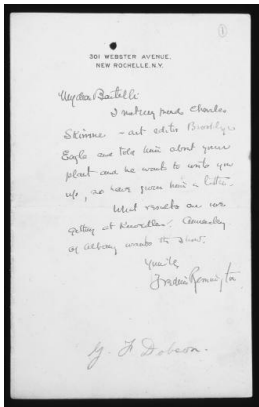 1
301 WEBSTER AVENUE,
NEW ROCHELLE, N.Y.
My dear Bertelli
I met my friend Charles
Skinner – art editor Brooklyn
Eagle and told him about your
plant and he wants to write you
up, so have given him a letter.
What results are we
getting at Knoedler's? Annesley
of Albany wants the show.
Yours
Frederic Remington